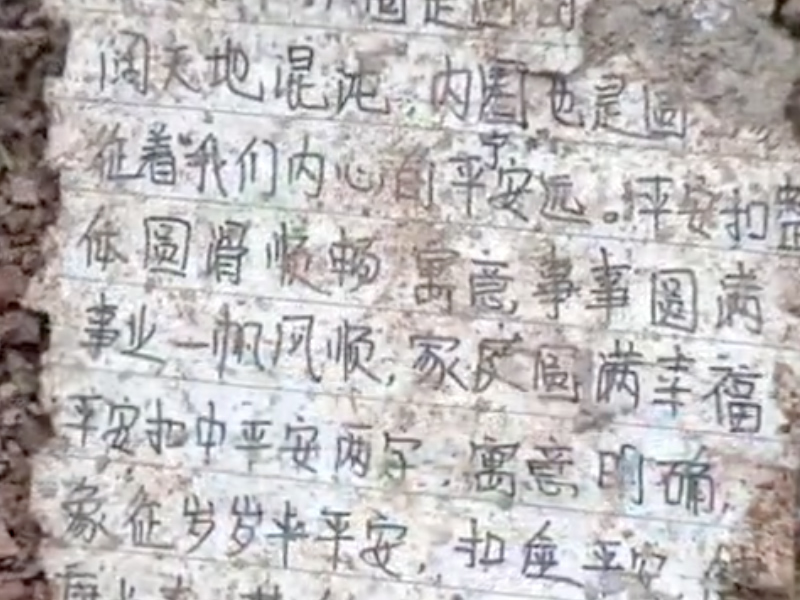 圆是圆的
阔天地混沌,内圈也是圆
征着我们内心的平宁安远。平安扣整
体圆滑顺畅 寓意事事圆满
事业一帆风顺,家庭圆满幸福
平安扣中平安两字,寓意明确,
象征岁岁平安,扣住平安